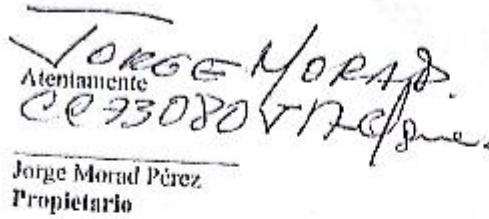 JORGE MORAD.
Atentamente
CC 73080
Jorge Morad Pérez
Propietario